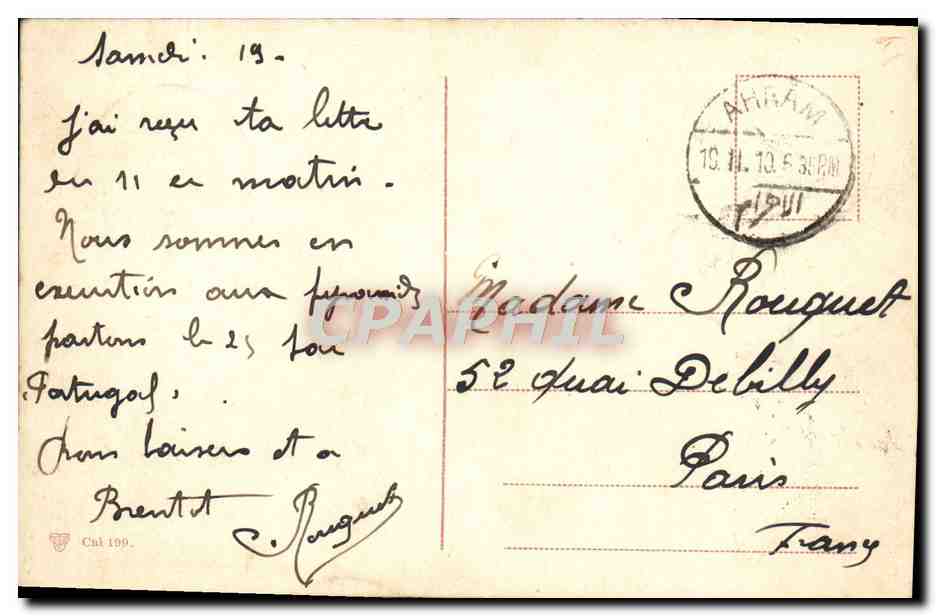 Samedi. 19.
j'ai reçu ta lettre
du 11 ce matin.
Nous sommes en
excurtion aux pyramides
partons le 25 sur
Portugal.
Gros baisers et a
Bientot
C. Rouquet
Cai 199.
AHRAM
19. II. 10. 6 35 PM
Madame Rouquet
52 Quai Debilly
Paris
France
CPAPHIL